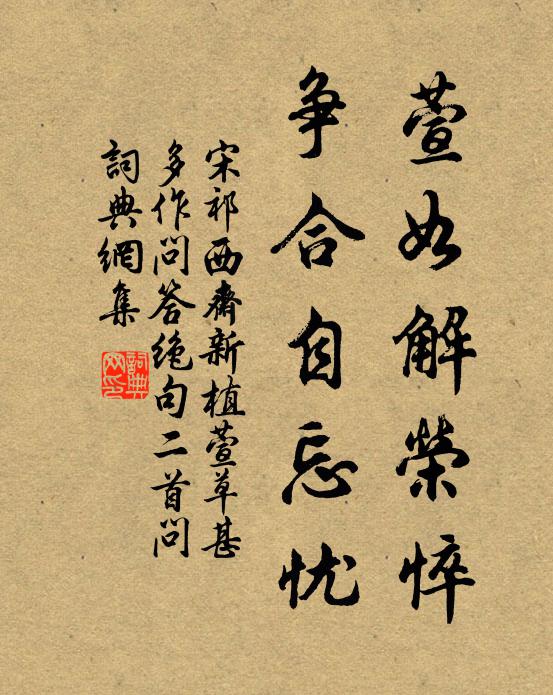 萱如解榮悴
争合自忘忧
宋祁西齋新植萱草甚
多作問答绝句二首問
詞典網集
詞典網印